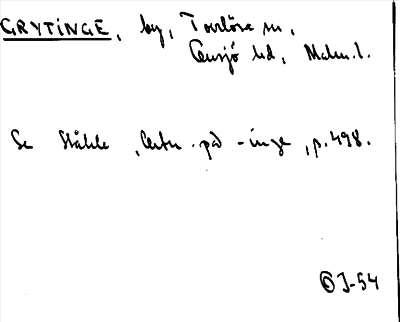 GRYTINGE, by, Torrlösa sn,
Onsjö hd, Malm.l.
Se Ståhle, Ortn. på -inge, p. 498.
J-54